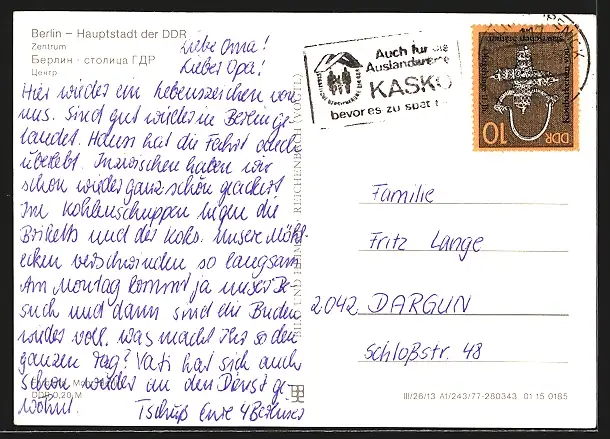 Berlin – Hauptstadt der DDR
Zentrum
Берлин · столица ГДР
Центр
Liebe Oma!
Lieber Opa!
Hier wieder ein Lebenszeichen von
uns. Sind gut wieder in Berlin ge-
landet. Hann hat die Fahrt auch
überlebt. Inzwischen haben wir
schon wieder ganz schön geackert
Im Kohlenschuppen liegen die
Briketts und der Koks. Unsere
ecken verschwinden so langsam.
Am Montag kommt ja unser Be-
such und dann sind die Buden
wieder voll. Was macht Ihr so den
ganzen Tag? Vati hat sich auch
schon wieder an den Dienst ge-
wöhnt. Tschüß Eure 4 Berliner
DDR 0,20 M
BILD UND HEIMAT REICHENBACH (VOGTL)
Auch für die
Auslandsreise
KASKO
bevor es zu spät
10
DDR
Familie
Fritz Lange
2042 DARGUN
Schloßstr. 48
III/26/13 A1/243/77-280343 01 15 0165